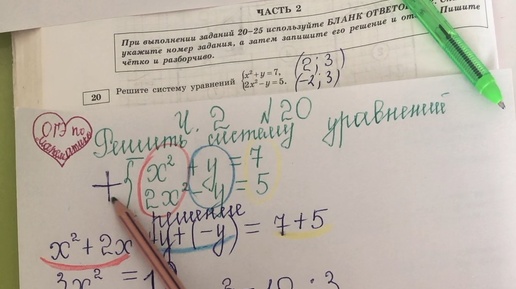 ЧАСТЬ 2
При выполнении заданий 20–25 используйте БЛАНК ОТВЕТОВ
укажите номер задания, а затем запишите его решение и Пишите
чётко и разборчиво.
20 Решите систему уравнений {x²+y=7, 2x²−y=5. (2; 3) (-2; 3)
ОГЭ по математике
Ч. 2 № 20
Решить систему уравнений
+ { x² + y = 7
2x² - y = 5
решение
x² + 2x + y + (-y) = 7 + 5
3x² = 1